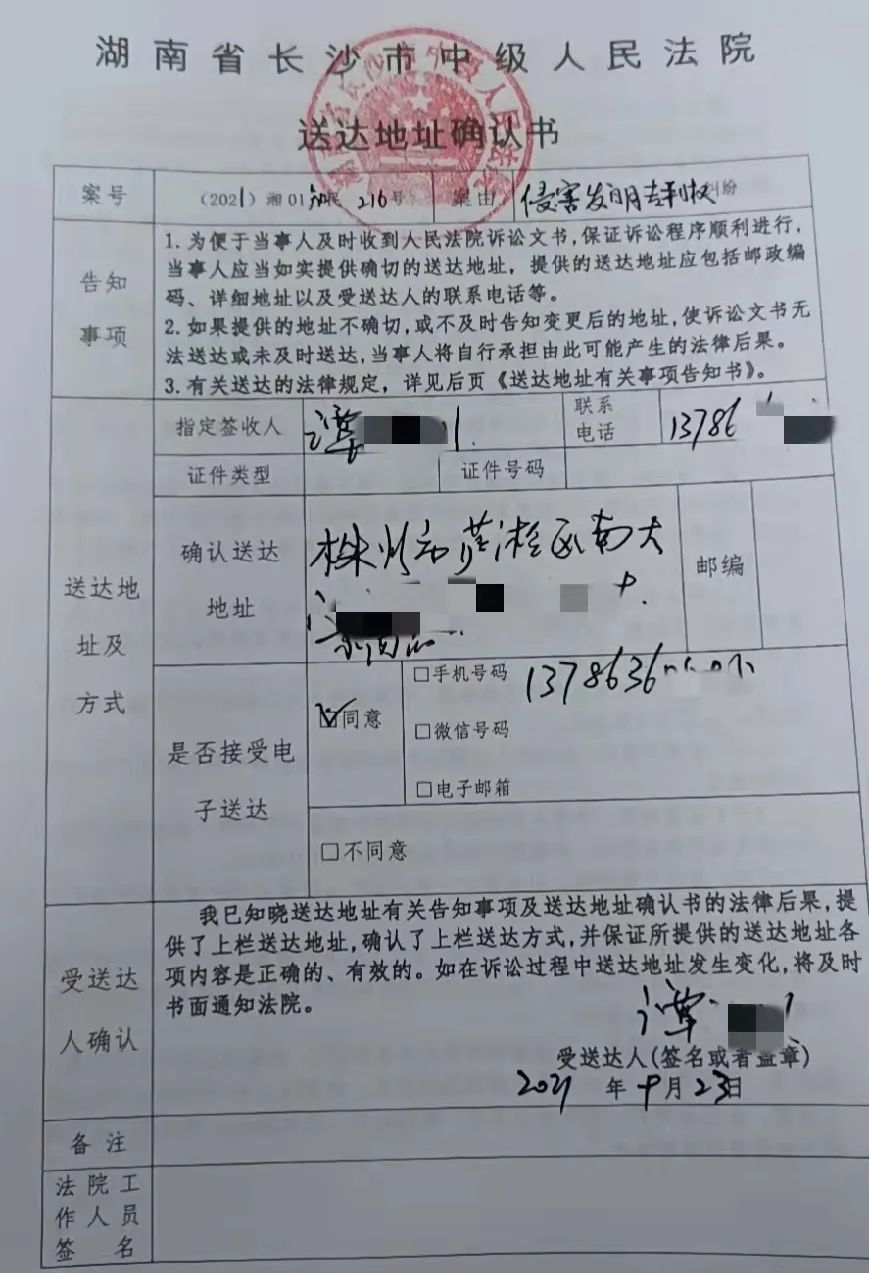 湖南省长沙市中级人民法院
送达地址确认书
案号 （2021）湘01知民216号 案由 侵害发明专利权纠纷
告知事项
1.为便于当事人及时收到人民法院诉讼文书,保证诉讼程序顺利进行,
当事人应当如实提供确切的送达地址，提供的送达地址应包括邮政编
码、详细地址以及受送达人的联系电话等。
2.如果提供的地址不确切,或不及时告知变更后的地址,使诉讼文书无
法送达或未及时送达,当事人将自行承担由此可能产生的法律后果。
3.有关送达的法律规定，详见后页《送达地址有关事项告知书》。
送达地址及方式
指定签收人 谭 联系电话 13786
证件类型 证件号码
确认送达地址 株洲市芦淞区南大 邮编
是否接受电子送达
☑同意
□手机号码 1378636
□微信号码
□电子邮箱
□不同意
受送达人确认
我已知晓送达地址有关告知事项及送达地址确认书的法律后果,提
供了上栏送达地址,确认了上栏送达方式,并保证所提供的送达地址各
项内容是正确的、有效的。如在诉讼过程中送达地址发生变化,将及时
书面通知法院。
谭
受送达人(签名或者盖章)
2021年9月23日
备注
法院工
作人员
签名